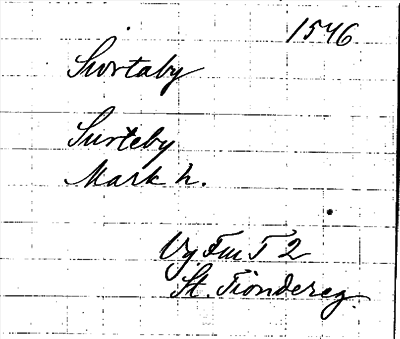 1546
Swrtaby
Surteby
Mark h.
Vg Fm T 2
St. Tiondereg.